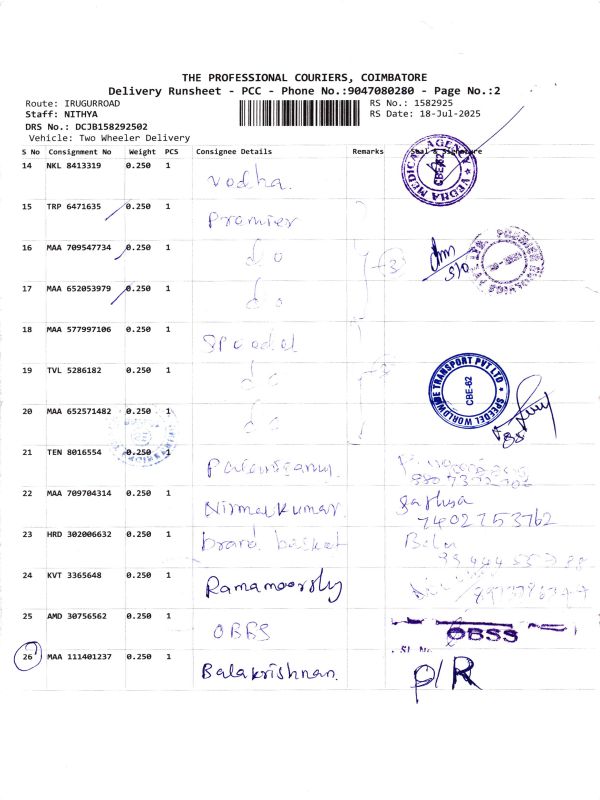 THE PROFESSIONAL COURIERS, COIMBATORE
Delivery Runsheet - PCC - Phone No.:9047080280 - Page No.:2
Route: IRUGURROAD
Staff: NITHYA
DRS No.: DCJB158292502
Vehicle: Two Wheeler Delivery
RS No.: 1582925
RS Date: 18-Jul-2025
S No Consignment No Weight PCS Consignee Details Remarks Seal & Signature
14 NKL 8413319 0.250 1 Vedha.
VEDHA MEDICAL AGENCY CBE-62
15 TRP 6471635 0.250 1 Premier
16 MAA 709547734 0.250 1 do
17 MAA 652053979 0.250 1 do
18 MAA 577997106 0.250 1 Speedel
19 TVL 5286182 0.250 1 do
SPEEDEL WORLDWIDE TRANSPORT PVT LTD CBE-62
20 MAA 652571482 0.250 1 do
21 TEN 8016554 0.250 1
22 MAA 709704314 0.250 1 Nirmalkumar. Sathya
7402753762
23 HRD 302006632 0.250 1 brand basket Bala
24 KVT 3365648 0.250 1 Ramamoorthy
25 AMD 30756562 0.250 1 OBBS OBSS
26 MAA 111401237 0.250 1 Balakrishnan. P/R